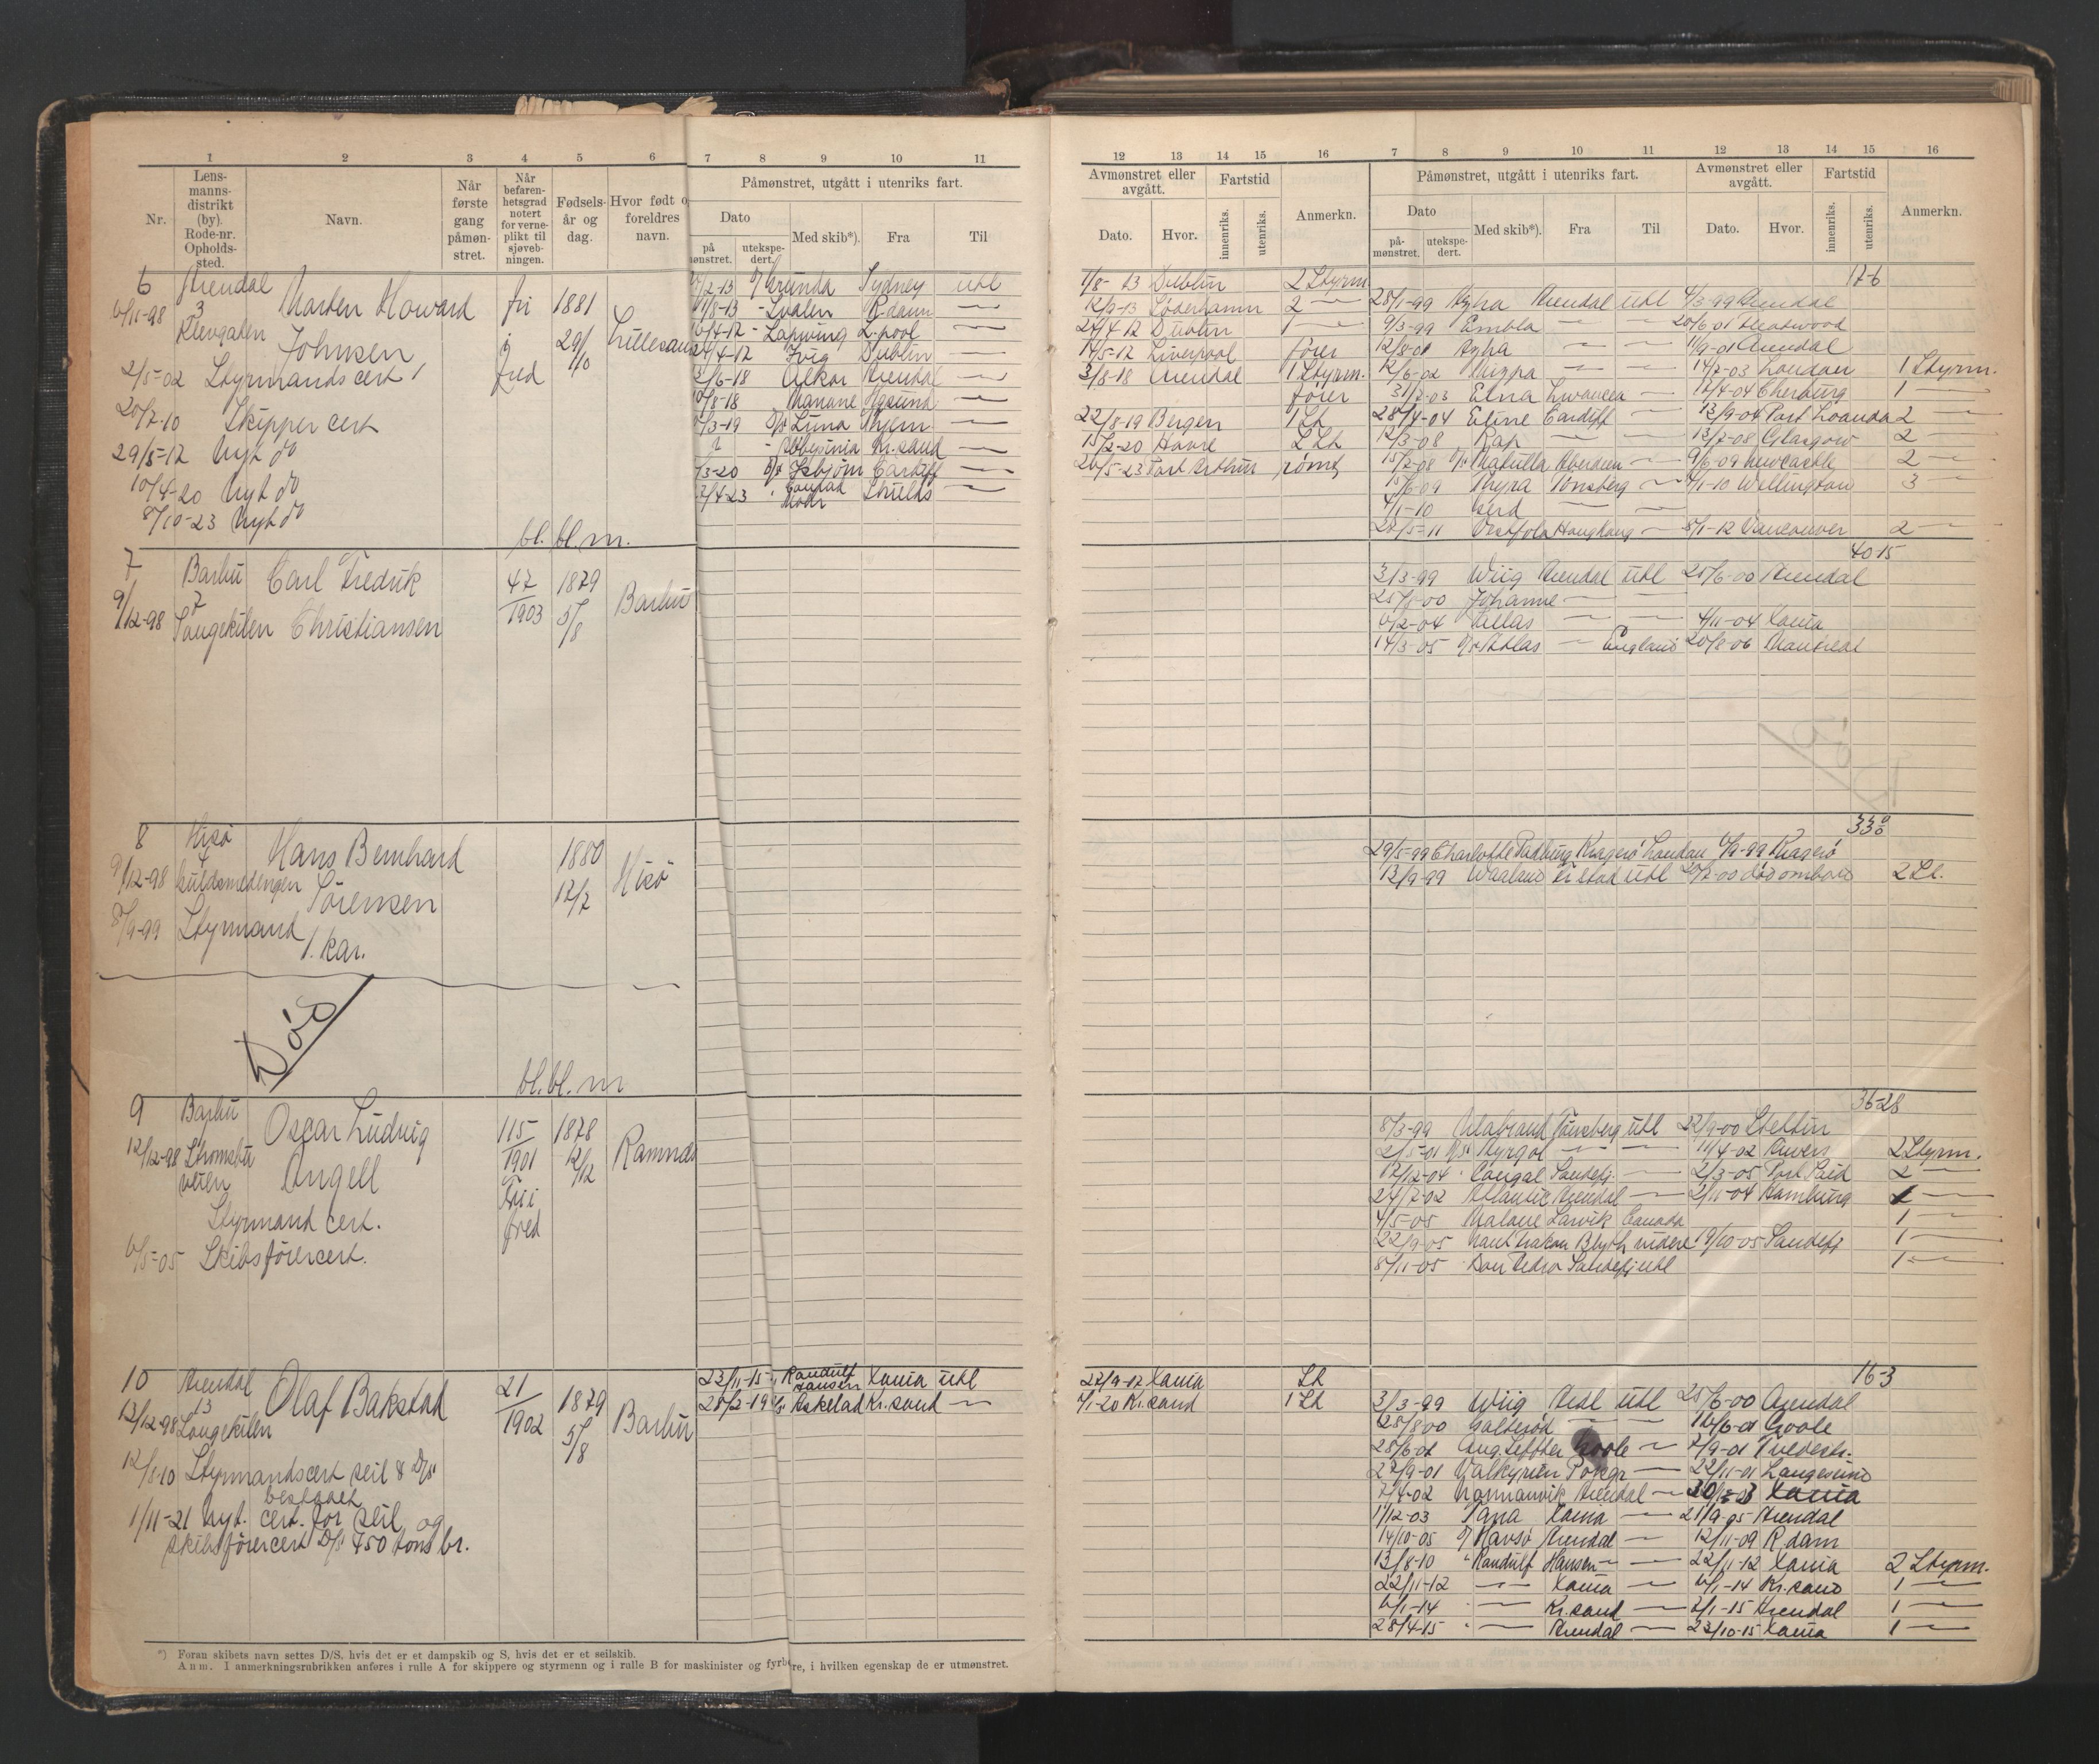 1 2 3 4 5 6 7 8 9 10 11 12 13 14 15 16 7 8 9 10 11 12 13 14 15 16
Nr.
Lens-
manns-
distrikt
(by).
Rode-nr.
Opholds-
sted.
Navn.
Når
første
gang
påmøn-
stret.
Når
befaren-
hetsgrad
notert
for verne-
plikt til
sjøveb-
ningen.
Fødsels-
år og
dag.
Hvor født o
foreldres
navn.
Påmønstret, utgått i utenriks fart.
Dato
på
mønstret.
utekspe-
dert.
Med skib*).
Fra
Til
Avmønstret eller
avgått.
Dato.
Hvor.
Fartstid
innenriks.
utenriks.
Anmerkn.
Påmønstret, utgått i utenriks fart.
Dato
på-
mønstret.
utekspe-
dert.
Med skib*).
Fra
Til
Avmønstret eller
avgått.
Dato.
Hvor.
Fartstid
innenriks.
utenriks.
Anmerkn.
6
Arendal
3
6/11-98
Marten Howard
Johnsen
fri
i
fred
1881
29/10
Lillesand
2/5-02 Styrmandscert
20/7-10 Skipper cert
29/5-12 Nyt do
10/4-20 Nyt do
8/10-23 Nyt do
bl. bl. m.
Sydney utl
11/8-13 - Svalen R.dam —
16/4-12 - Lapwing L.pool —
24/4-12 Dublin —
2/6-18 Alkor Arendal —
Luna
Kr.sand —
3-20 D/s Isbjørn Cardiff —
7/4-23 Conrad Mohr Shields —
1/8-13 Dublin 2 Styrm
12/9-13 Söderhamn 2 —
24/4 12 Dublin 1 —
14/5-12 Liverpool fører
3/8-18 Arendal 1 Styrm.
fører
22/8-19 Bergen 1 St
15/2-20 Havre 2 St
20/5-23 Port Arthur rømt
17-6
28/1-99 Arendal utl 4/3 99 Arendal
9/3-99 Embla — — 20/6 01 Fleetwood
12/8-01 — — 11/9-01 Arendal
12/6-02 Mizpa — — 14/7-03 London 1 Styrm.
31/7-03 Elna Swansea — 12/4-04 Cherburg 1 —
28/4-04 Eline Cardiff — 13/9-04 Port Loanda 2 —
12/3-08 Kap — — 13/7-08 Glasgow 2 —
15/7-08 D/s Matulla Aberdeen — 9/6-09 Newcastle 2 —
15/6-09 Thyra Tønsberg — 4/1-10 Wellington 3 —
4/1-10 Gerd — —
22/5-11 Vestfold Hongkong — 8/1-12 Vancouver 2 —
7
9/12-98
Barbu
7
Songekilen
Carl Fredrik
Christiansen
47/1903
1879
5/8
Barbu
40 15
3/3-99 Wiig Arendal utl 25/6-00 Arendal
25/8-00 Johanne — —
10/2-04 — — 4/11-04 Xania
14/3-05 D/s Atlas — England 20/8-06 Montreal
8
9/12-98
Hisö
4
Guldsmedengen
Hans Bernhard
Sörensen
1880
12/7
Hisö
8/9-99 Styrmand
1. kar.
Död
bl. bl. m
29/5-99 Charlotte Padbury Kragerö London 6/9-99 Kragerö
13/9-99 Waaland utl død ombord 2 St.
9
12/12-98
Barbu
Strömsbu
veien
Oscar Ludvig
Angell
115/1901
Fri
i
fred
1878
12/12
Ramnes
Styrmand cert.
6/5-05 Skibsförercert.
36-28
8/3-99 Tönsberg utl 22/9-00 Stettin
2/5-01 D/s Tyrgol — — 11/4-02 2 Styrm.
12/12-04 Sandefj. — 2/3-05 Port Said 2 —
24/7-02 Atlantic Arendal — 2/11-04 Hamburg 1 —
4/5-05 Larvik Canada 1 —
22/9-05 Blyth videre 19/10-05 Sandefj 1 —
8/11-05 Don Pedro Sandefj utl 1 —
10
13/12-98
Arendal
13
Songekilen
Olaf Bakstad
21/1902
1879
5/8
Barbu
12/8-10 Styrmandscert seil & D/s
bestaaet
1/11-21 Nyt. cert. for seil og
skibsförercert D/s 450 tons br.
23/11-15 Randulf
Hansen Xania utl
28/2-19 D/s Askelad Kr.sand —
27/9-17 Xania St
7/1-20 Kr.sand 1 St
16-3
3/3-99 Wiig Ardl utl 25/6-00 Arendal
28/8 00 Galtesöd — — 16/6-01 Goole
28/6-01 Goole — 7/9-01 Tvedestr.
27/9-01 Valkyrien Porsgr — 22/11-01 Langesund
7/4-02 Normanvik Arendal — Xania
1/12-03 Tana Xania — 21/9-05 Arendal
14/10-05 D/s Havsö Arendal — 12/11-09 R.dam
13/8-10 " Randulf Hansen — — 22/11-12 Xania 2 Styrm.
22/11-12 — Xania — 6/1-14 Kr.sand 1 —
6/1-14 — Kr.sand — 2/1-15 Arendal 1 —
28/4-15 — Arendal — 23/10-15 Xania 1 —
*) Foran skibets navn settes D/S, hvis det er et dampskib og S, hvis det er et seilskib.
Anm. I anmerkningsrubrikken anføres i rulle A for skippere og styrmenn og i rulle B for maskinister og fyrbøtere, i hvilken egenskap de er utmønstret.